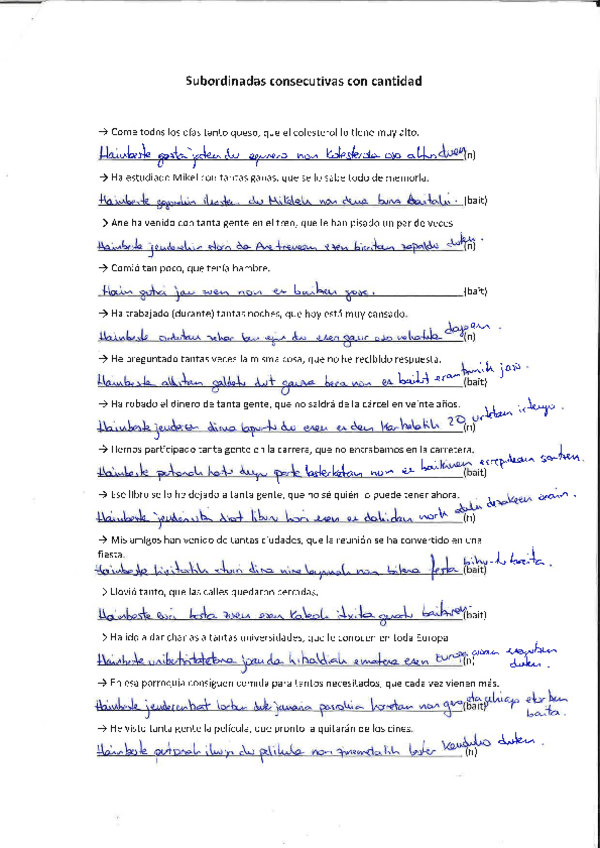 Subordinadas consecutivas con cantidad
→ Come todos los días tanto queso, que el colesterol lo tiene muy alto.
Hainbeste gazta jaten du egunero non kolesterola oso altu duen (n)
→ Ha estudiado Mikel con tantas ganas, que se lo sabe todo de memoria.
Hainbeste du Mikelek non dena buruz (bait)
→ Ane ha venido con tanta gente en el tren, que le han pisado un par de veces
Hainbeste jenderekin etorri da Ane trenean ezen birritan zapaldu duten. (n)
→ Comió tan poco, que tenía hambre.
Hain gutxi jan zuen non ez baitzen (bait)
→ Ha trabajado (durante) tantas noches, que hoy está muy cansado.
Hainbeste lan egin du ezen gaur oso nekatuta dagoen. (n)
→ He preguntado tantas veces la misma cosa, que no he recibido respuesta.
Hainbeste galdetu dut gauza bera non ez baitut erantzunik jaso. (bait)
→ Ha robado el dinero de tanta gente, que no saldrá de la cárcel en veinte años.
Hainbeste jenderen dirua lapurtu du ezen ez den kartzelatik 20 urtetan irtengo. (n)
→ Hemos participado tanta gente en la carrera, que no entrabamos en la carretera.
Hainbeste pertsonak hartu dugu parte lasterketan non ez baikinen errepidean sartzen. (bait)
→ Ese libro se lo he dejado a tanta gente, que no sé quién lo puede tener ahora.
Hainbeste jenderi utzi diot liburu hori ezen ez dakidan nork eduki dezakeen orain. (n)
→ Mis amigos han venido de tantas ciudades, que la reunión se ha convertido en una
fiesta.
Hainbeste hiritatik etorri dira nire lagunak non bilera festa bihurtu baita. (bait)
→ Llovió tanto, que las calles quedaron cerradas.
Hainbeste euri bota zuen ezen kaleak itxita geratu baitziren. (bait)
→ Ha ido a dar charlas a tantas universidades, que le conocen en toda Europa
Hainbeste unibertsitatetara joan da hitzaldiak ematera ezen Europa osoan ezagutzen
duten. (n)
→ En esa parroquia consiguen comida para tantos necesitados, que cada vez vienen más.
Hainbeste jenderentzat lortzen dute janaria parrokia horretan non gero eta gehiago etortzen
baita. (bait)
→ He visto tanta gente la película, que pronto la quitarán de los cines.
Hainbeste pertsonak ikusi du pelikula non zinemetatik laster kenduko duten. (n)